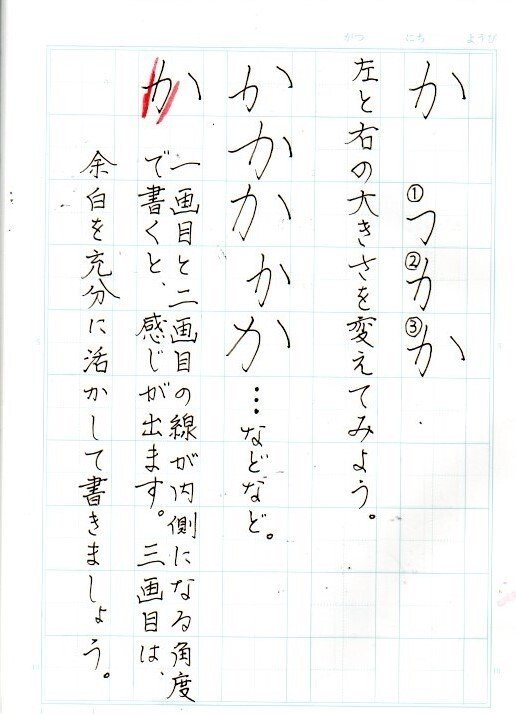 がつ にち ようび
か ①つ ②カ ③か
左と右の大きさを変えてみよう。
か か か か か …などなど。
か 一画目と二画目の線が内側になる角度
で書くと、感じが出ます。三画目は、
余白を充分に活かして書きましょう。